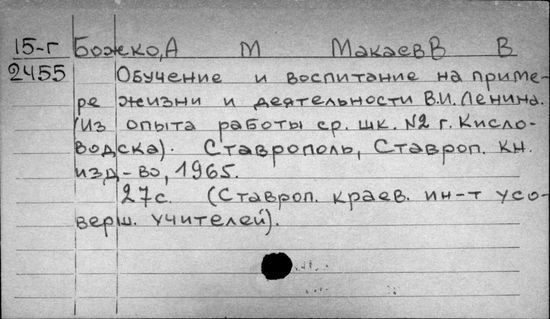 15-г Божко, А М Макаев В В
2455 Обучение и воспитание на приме-
ре жизни и деятельности В.И. Ленина.
(Из опыта работы ср. шк. №2 г. Кисло-
водска). Ставрополь, Ставроп. кн.
изд-во, 1965.
27с. (Ставроп. краев. ин-т усо-
верш. учителей).